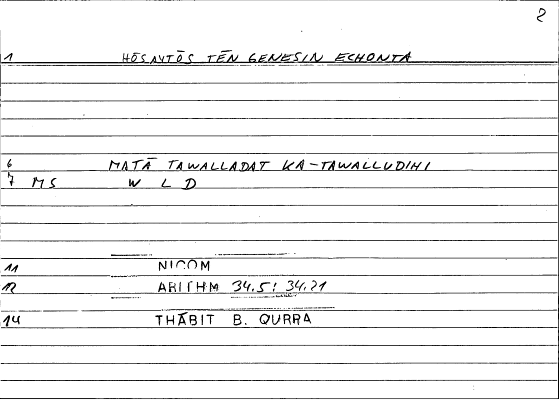 2
1 HŌSAYTŌS TĒN GENESIN ECHONTA
6 MATĀ TAWALLADAT KA-TAWALLUDIHI
7 MS W L D
11 NICOM
12 ARITHM 34.5; 34.21
14 THĀBIT B. QURRA